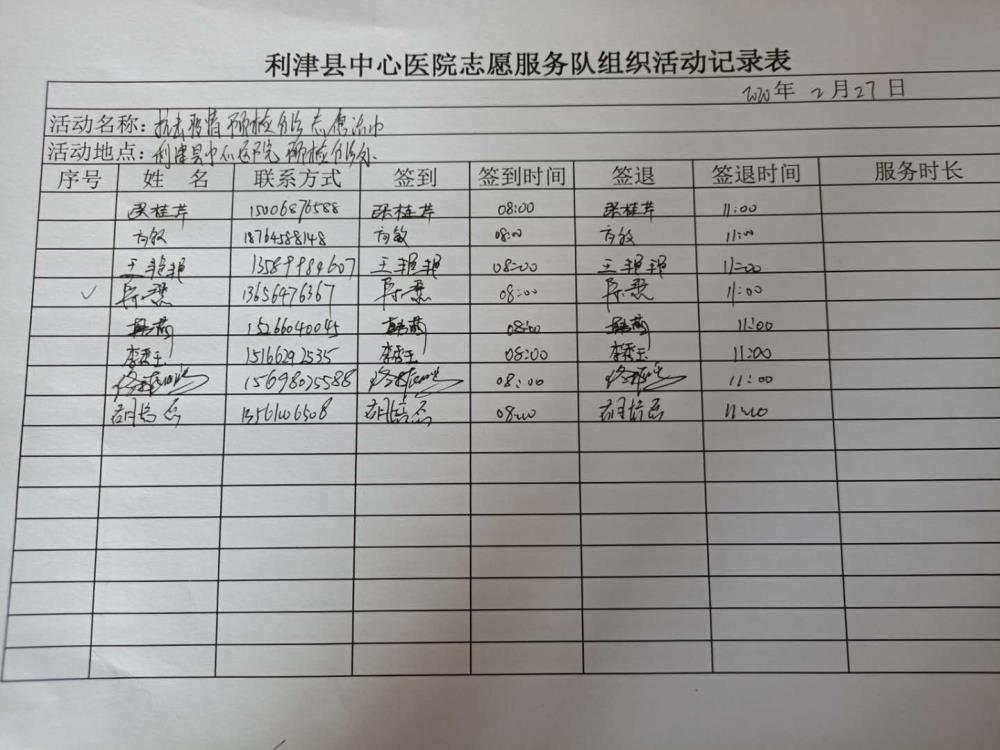 利津县中心医院志愿服务队组织活动记录表
2020年 2月27日
活动名称：抗击疫情预检分诊志愿活动
活动地点：利津县中心医院预检分诊处
序号 姓 名 联系方式 签到 签到时间 签退 签退时间 服务时长
张桂芹 15006876588 张桂芹 08:00 张桂芹 11:00
方敏 18764588148 方敏 08:00 方敏 11:00
王艳艳 13589984607 王艳艳 08:00 王艳艳 11:00
✓ 13656476367 08:00 11:00
韩萌 15266040045 韩萌 08:00 韩萌 11:00
李秀玉 15166292535 李秀玉 08:00 李秀玉 11:00
15698025588 08:00 11:00
13561106508 08:00 11:00